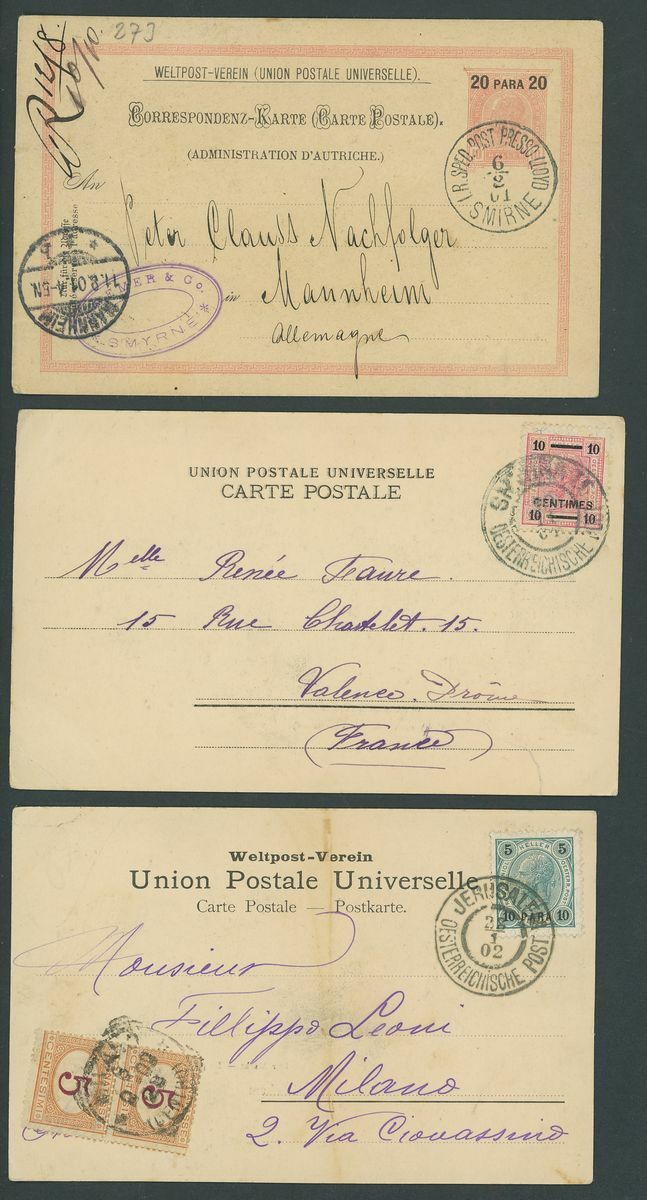 273
WELTPOST-VEREIN (UNION POSTALE UNIVERSELLE).
20 PARA 20
CORRESPONDENZ-KARTE (CARTE POSTALE).
(ADMINISTRATION D'AUTRICHE.)
I.R. SPED. POST. PRESSO LLOYD
6
2
01
SMIRNE
An
Peter Clauss Nachfolger
in Mannheim
Allemagne
MANNHEIM
11.2.01. 4-5N.
& Co.
SMYRNE
UNION POSTALE UNIVERSELLE
CARTE POSTALE
10 10
CENTIMES
10 10
OESTERREICHISCHE
Melle Renée Faure.
15 Rue Chatelet. 15.
Valence. Drôme
(France)
Weltpost-Verein
Union Postale Universelle
Carte Postale — Postkarte.
5 HELLER 5
10 PARA 10
JERUSALEM
1
02
OESTERREICHISCHE POST
Monsieur
Fillippo Leoni
Milano
2. Via Ciovassino
5
CENTESIMI
5